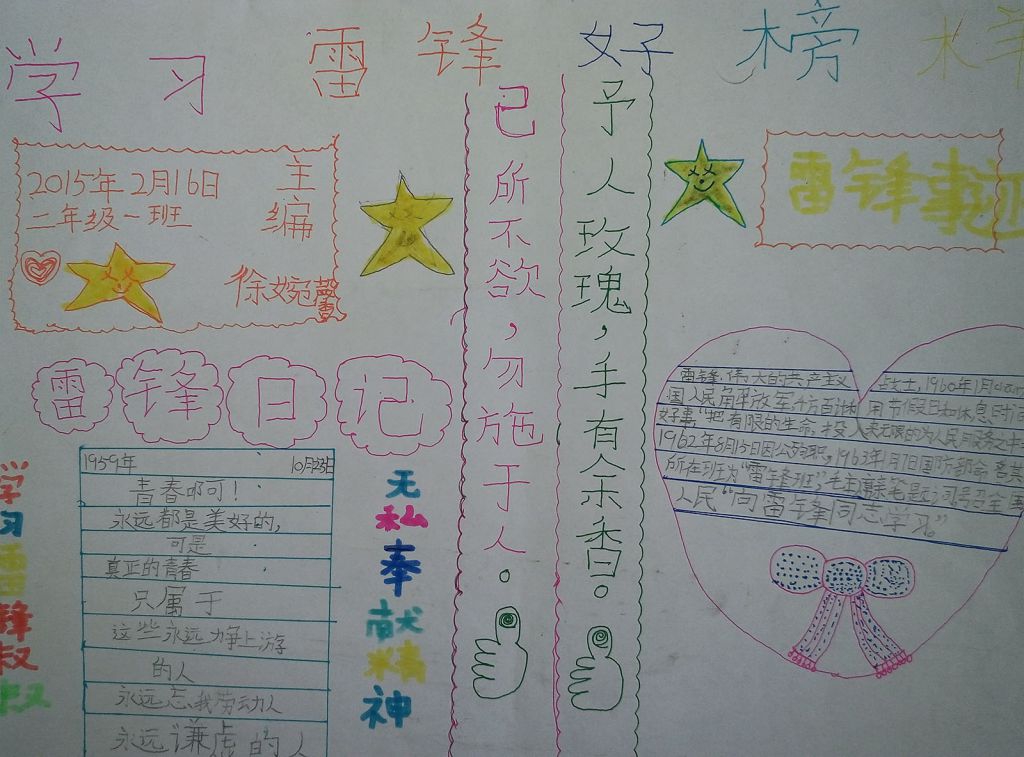 学习雷锋好榜样
2015年2月16日
二年级一班
主编
徐婉馨
己所不欲，勿施于人。
予人玫瑰，手有余香。
雷锋事迹
雷锋日记
1959年 10月25日
青春啊！
永远都是美好的，
可是
真正的青春
只属于
这些永远力争上游
的人
永远忘我劳动人
永远谦虚的人
学习雷锋叔叔
无私奉献精神
雷锋，伟大的共产主义战士，1960年1月
国人民解放军千方百计 用节假日和休息时间
好事“把有限的生命，投入无限的为人民服务之中
1962年8月15日因公殉职，1963年1月7日国防部命
所在班为“雷锋班”毛主席亲笔题词号召全国
人民“向雷锋同志学习”